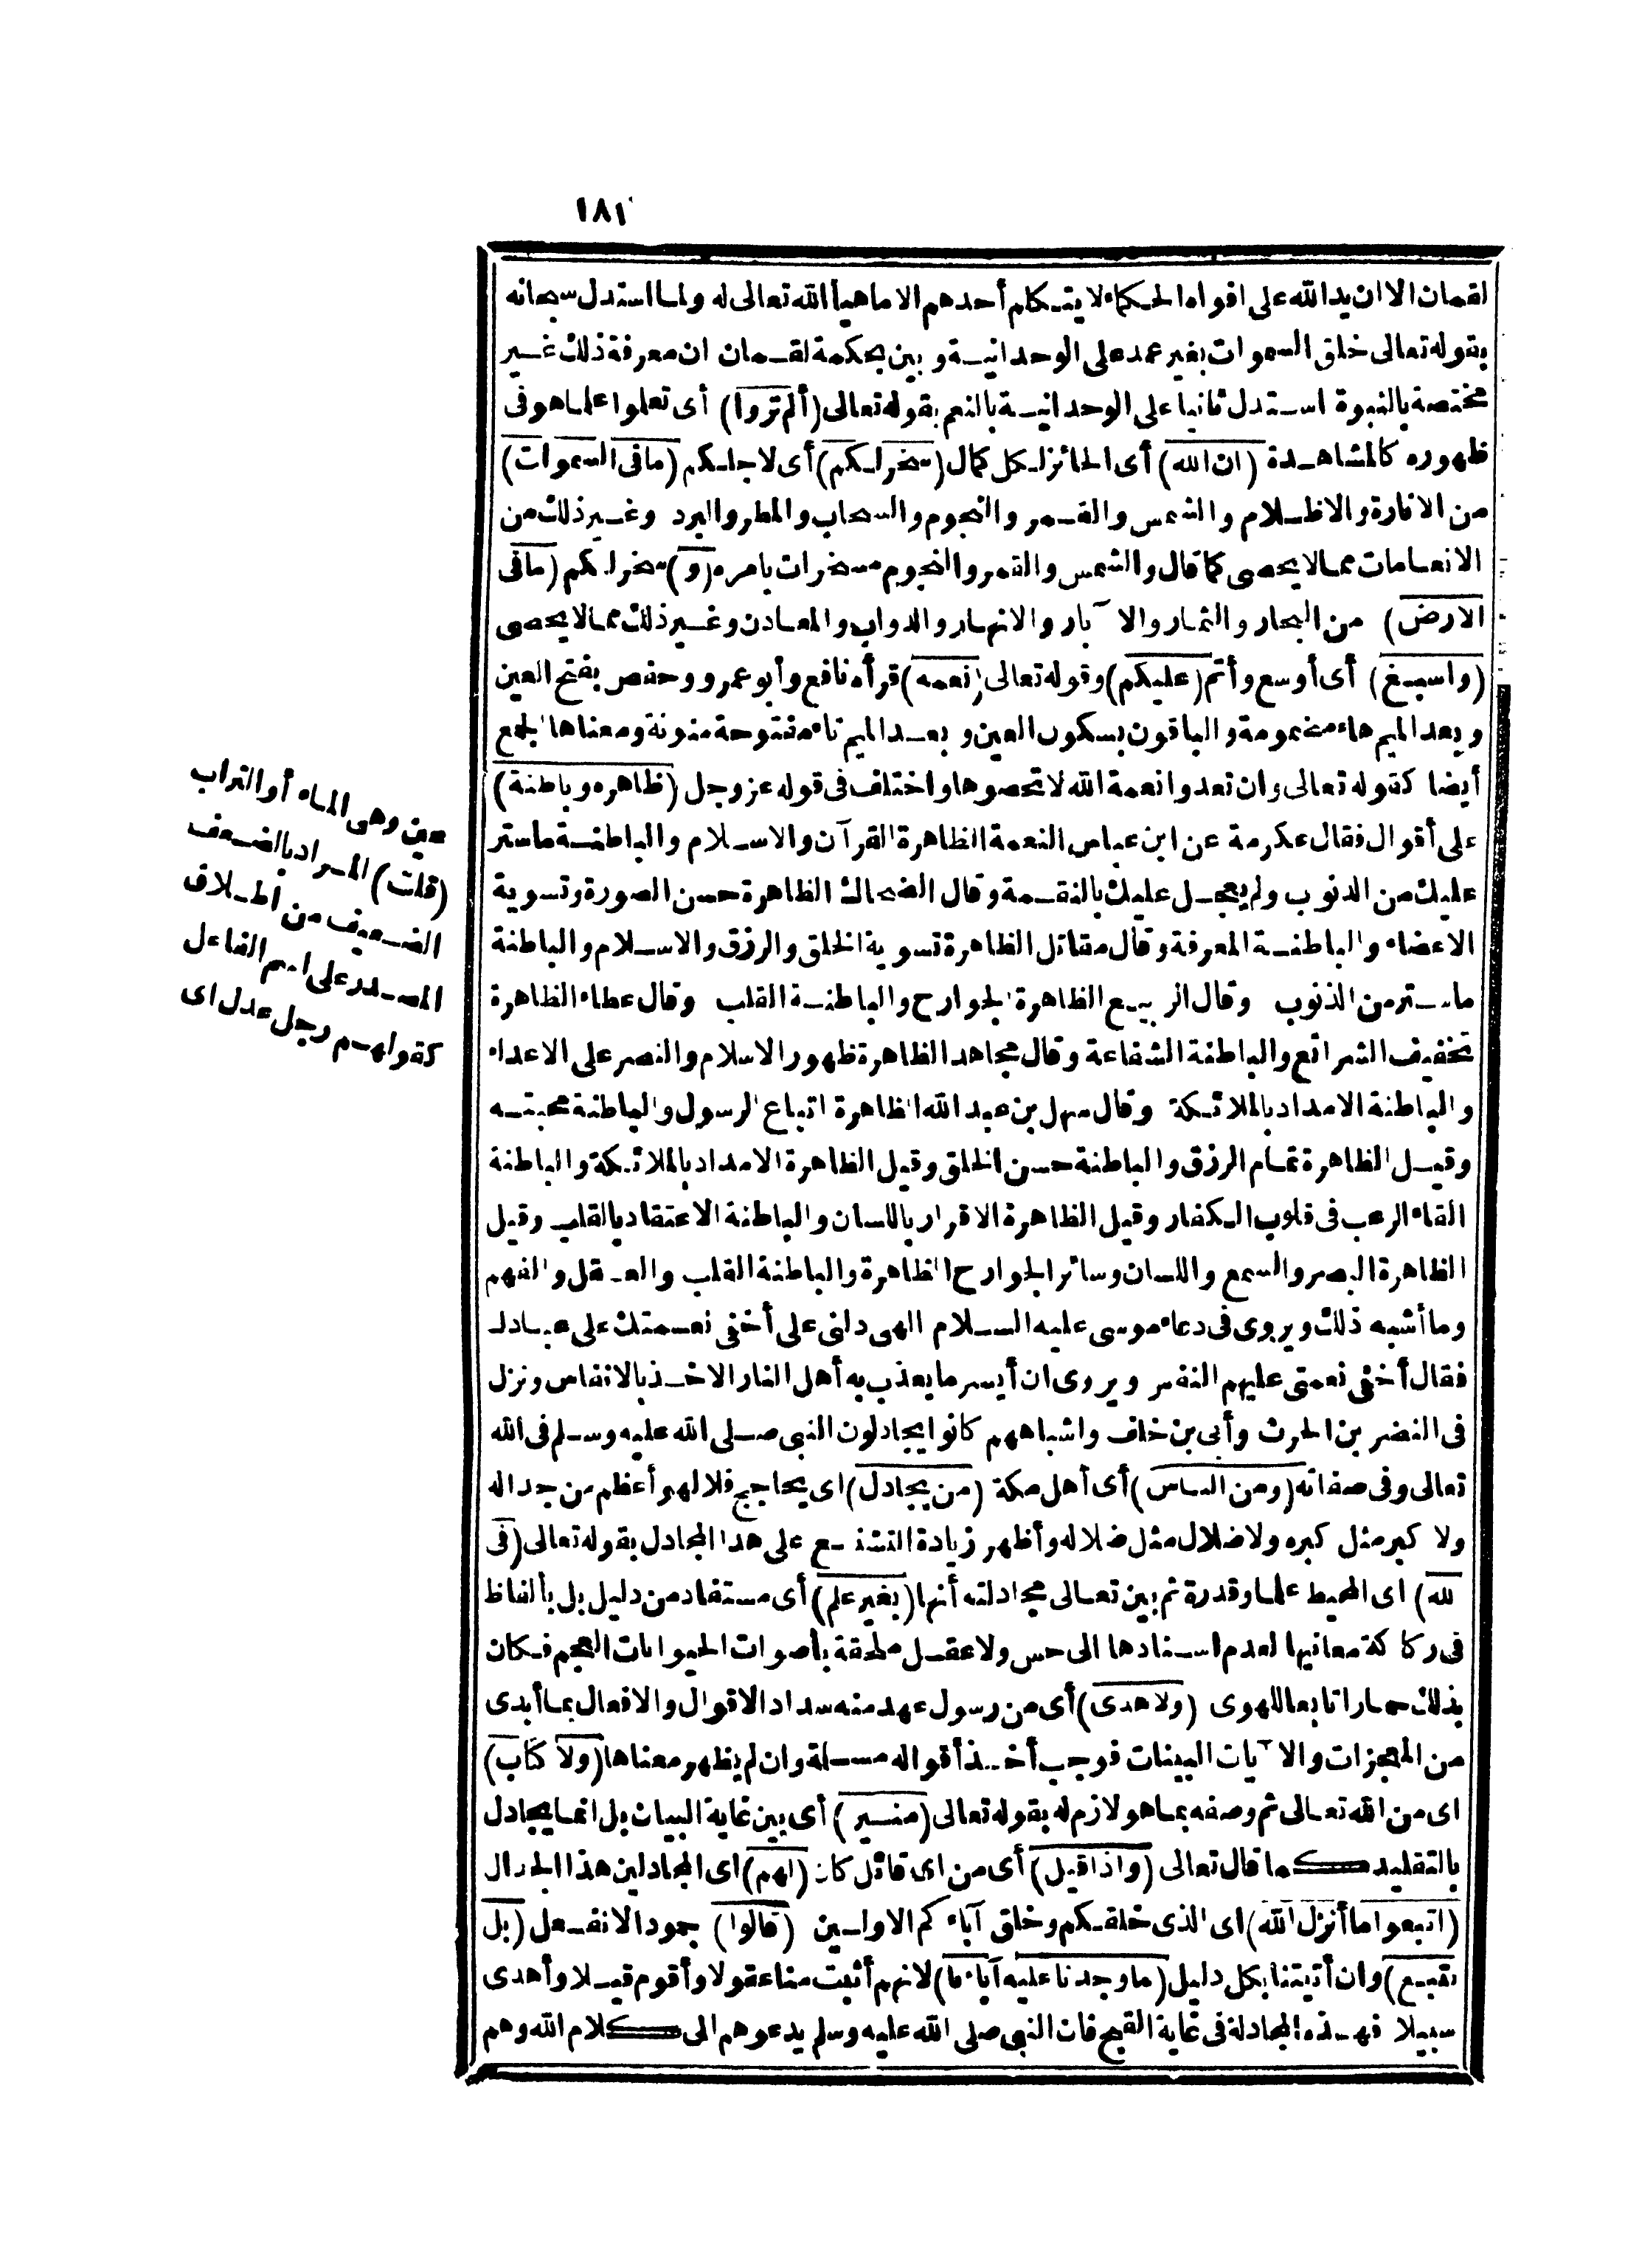 ١٨١
لقمان الا ان يد الله على افواه الحكماء لا يتكلم أحدهم الا ما هيأ الله تعالى له ولما استدل سبحانه
بقوله تعالى خلق السموات بغير عمد على الوحدانية وبين بحكمة لقمان ان معرفة ذلك غير
مختصة بالنبوة استدل ثانيا على الوحدانية بالنعم بقوله تعالى (ألم تروا) أى تعلموا علما هو فى
ظهوره كالمشاهدة (ان الله) أى الحائز لكل كمال (سخر لكم) أى لاجلكم (ما فى السموات)
من الانارة والاظلام والشمس والقمر والنجوم والسحاب والمطر والبرد وغير ذلك من
الانعامات مما لا يحصى كما قال والشمس والقمر والنجوم مسخرات بامره (و) سخر لكم (ما فى
الارض) من البحار والثمار والآبار والانهار والدواب والمعادن وغير ذلك مما لا يحصى
(واسبغ) أى أوسع وأتم (عليكم) وقوله تعالى (نعمه) قرأه نافع وأبو عمرو وحفص بفتح العين
وبعد الميم هاء مضمومة والباقون بسكون العين وبعد الميم تاء مفتوحة منونة ومعناها الجمع
أيضا كقوله تعالى وان تعدوا نعمة الله لا تحصوها واختلف فى قوله عز وجل (ظاهره وباطنة)
على أقوال فقال عكرمة عن ابن عباس النعمة الظاهرة القرآن والاسلام والباطنة ما ستر
عليك من الذنوب ولم يعجل عليك بالنقمة وقال الضحاك الظاهرة حسن الصورة وتسوية
الاعضاء والباطنة المعرفة وقال مقاتل الظاهرة تسوية الخلق والرزق والاسلام والباطنة
ما ستر من الذنوب وقال الربيع الظاهرة الجوارح والباطنة القلب وقال عطاء الظاهرة
تخفيف الشرائع والباطنة الشفاعة وقال مجاهد الظاهرة ظهور الاسلام والنصر على الاعداء
والباطنة الامداد بالملائكة وقال سهل بن عبد الله الظاهرة اتباع الرسول والباطنة محبته
وقيل الظاهرة تمام الرزق والباطنة حسن الخلق وقيل الظاهرة الامداد بالملائكة والباطنة
القاء الرعب فى قلوب الكفار وقيل الظاهرة الاقرار باللسان والباطنة الاعتقاد بالقلب وقيل
الظاهرة البصر والسمع واللسان وسائر الجوارح الظاهرة والباطنة القلب والعقل والفهم
وما أشبه ذلك ويروى فى دعاء موسى عليه السلام الهى دلنى على أخفى نعمتك على عبادك
فقال أخفى نعمتى عليهم النفس ويروى ان أيسر ما يعذب به أهل النار الاخذ بالانفاس ونزل
فى النضر بن الحرث وأبى بن خلف واشباههم كانوا يجادلون النبى صلى الله عليه وسلم فى الله
تعالى وفى صفاته (ومن الناس) أى أهل مكة (من يجادل) اى يحاجج فلا لهو أعظم من جداله
ولا كبر مثل كبره ولا ضلال مثل ضلاله وأظهر زيادة التشنيع على هذا المجادل بقوله تعالى (فى
لله) اى المحيط علما وقدرة ثم بين تعالى مجادلته أنها (بغير علم) أى مستفاد من دليل بل بألفاظ
فى ركاكة معانيها لعدم اسنادها الى حس ولا عقل ملحقة بأصوات الحيوانات العجم فكان
بذلك حمارا تابعا للهوى (ولا هدى) أى من رسول عهد منه سداد الاقوال والافعال بما أبدى
من المعجزات والآيات البينات فوجب أخذ أقواله مسلة وان لم يظهر معناها (ولا كتاب)
اى من الله تعالى ثم وصفه بما هو لازم له بقوله تعالى (منير) أى بين غاية البيان بل انما يجادل
بالتقليد كما قال تعالى (واذا قيل) أى من اى قائل كان (لهم) اى المجادلين هذا الجدال
(اتبعوا ما أنزل الله) اى الذى خلقكم وخلق آباءكم الاولين (قالوا) جمودا لا نفعل (بل
نتبع) وان أتيتنا بكل دليل (ما وجدنا عليه آباءنا) لانهم أثبت منا عقولا وأقوم قيلا وأهدى
سبيلا فهذه المجادلة فى غاية القبح فان النبى صلى الله عليه وسلم يدعوهم الى كلام الله وهم
عين وهى الماء أو التراب
(قلت) المراد بالضعف
الضعيف من اطلاق
المصدر على اسم الفاعل
كقولهم رجل عدل اى